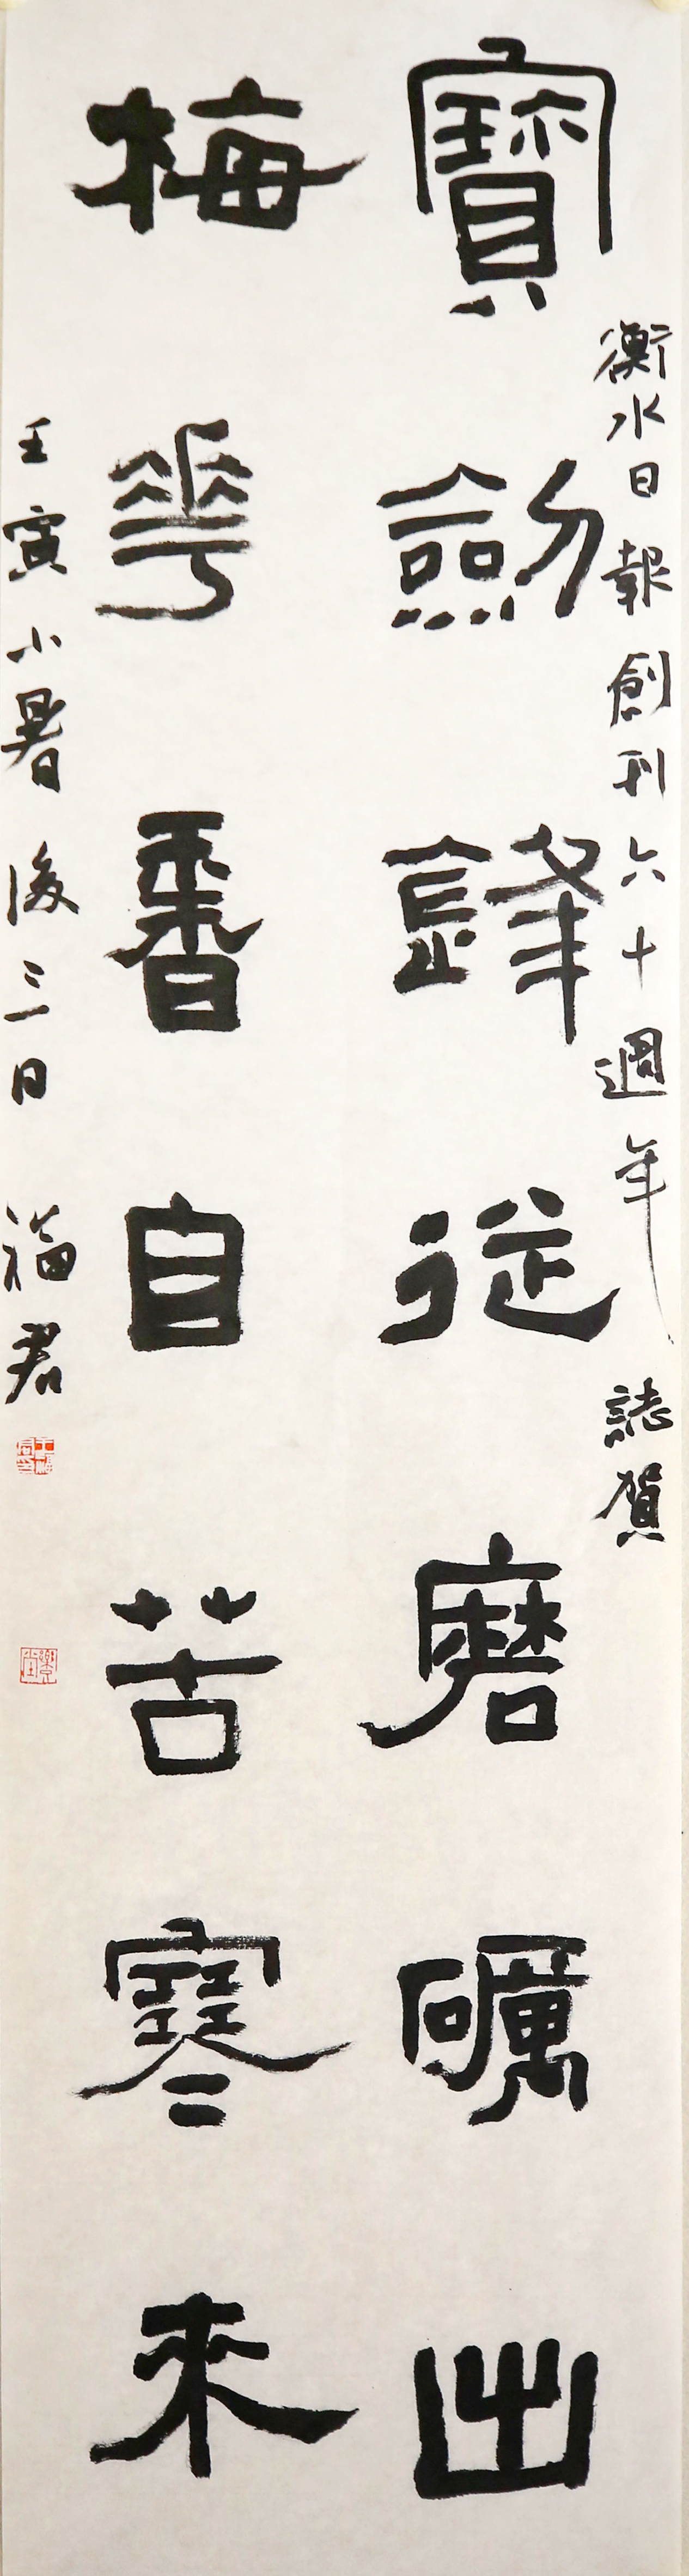 衡水日報創刊六十週年 誌賀
寶劍鋒從磨礪出
梅花香自苦寒來
壬寅小暑後三日 福君